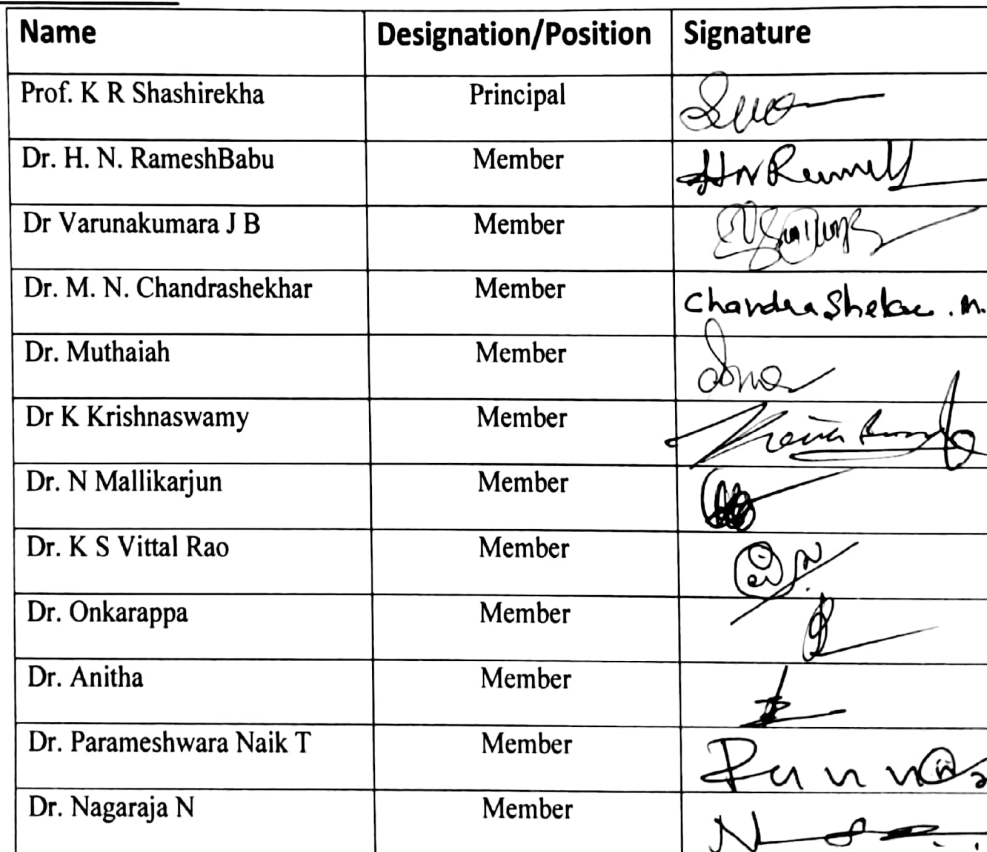 Name Designation/Position Signature
Prof. K R Shashirekha Principal
Dr. H. N. RameshBabu Member
Dr Varunakumara J B Member
Dr. M. N. Chandrashekhar Member
Dr. Muthaiah Member
Dr K Krishnaswamy Member
Dr. N Mallikarjun Member
Dr. K S Vittal Rao Member
Dr. Onkarappa Member
Dr. Anitha Member
Dr. Parameshwara Naik T Member
Dr. Nagaraja N Member